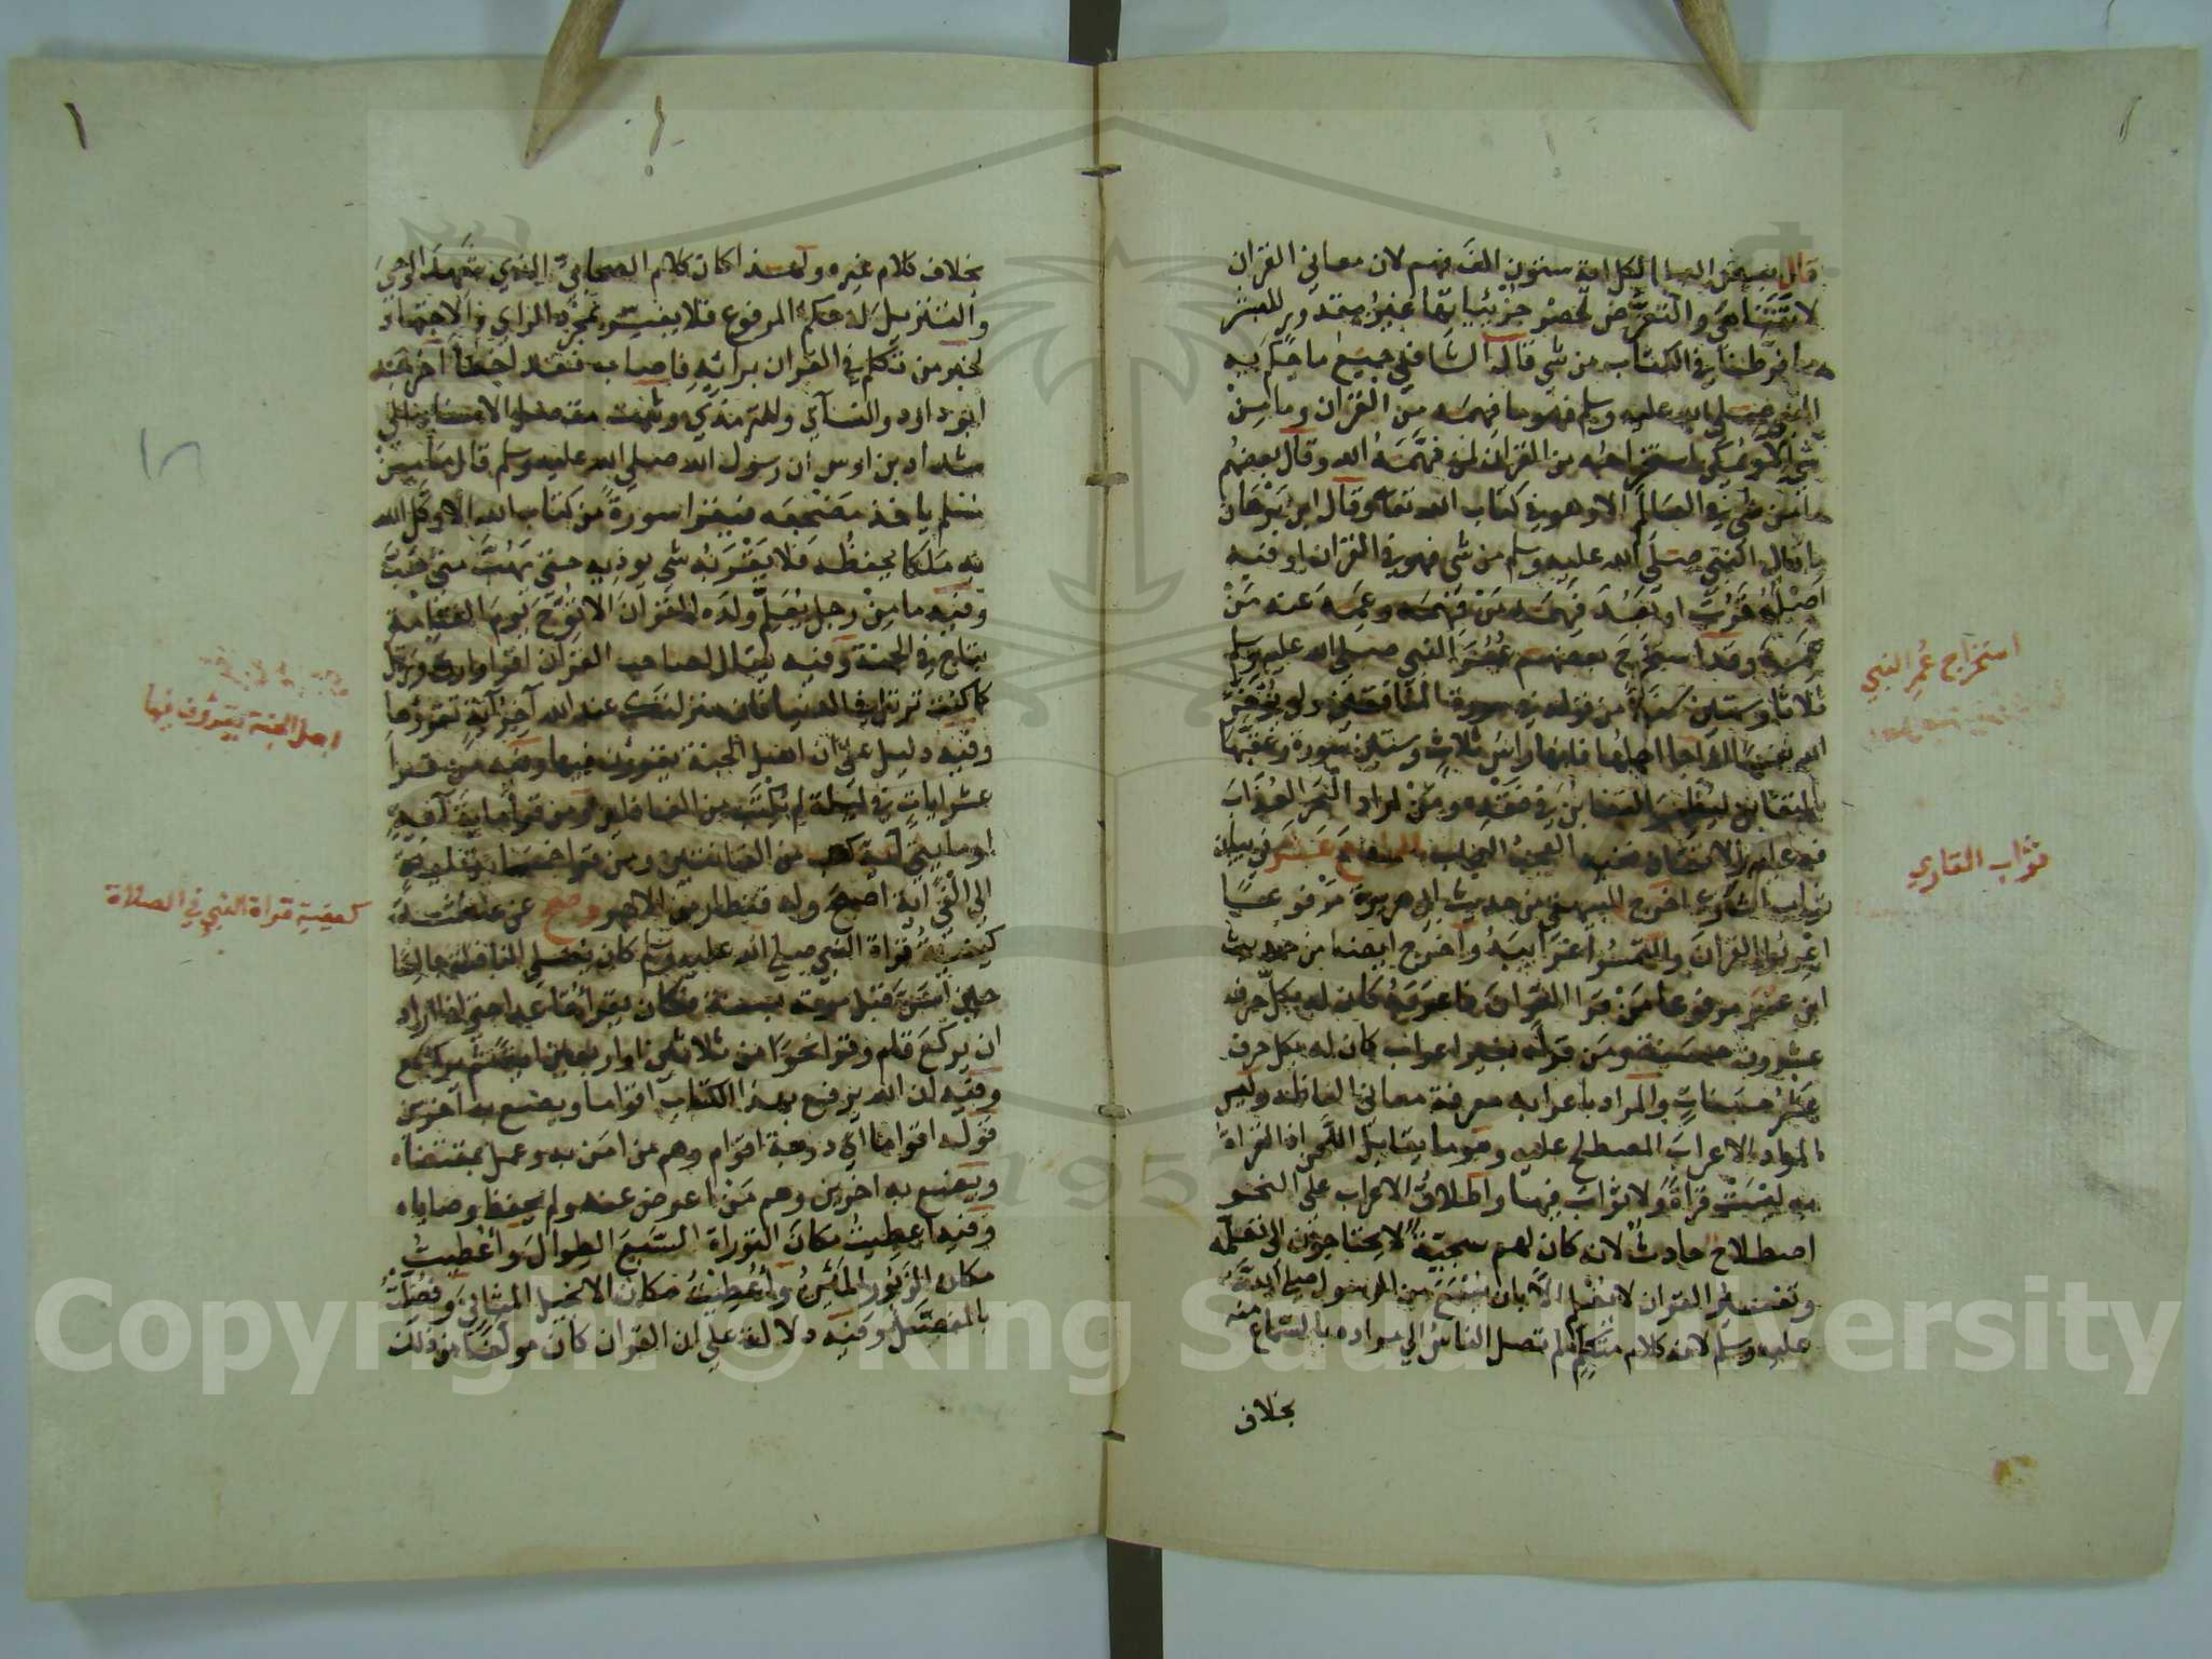 قال بعض العلما لكل اية ستون الف فهم لان معاني القران
لا تتناهى والتعرض لحصر جزئياتها غير مقدور للبشر
ما فرطنا في الكتاب من شي قال الشافعي جميع ما حكم به
النبي صلى الله عليه وسلم فهو مما فهمه من القران وما من
شي الا ويمكن استخراجه من القران لمن فهمه الله وقال بعضهم
ما من شي في العالم الا وهو في كتاب الله تعالى وقال ابن برهان
ما قال النبي صلى الله عليه وسلم من شي فهو في القران او فيه
اصله قرب او بعد فهمه من فهمه وعمه عنه من
عمه وقد استخرج بعضهم عمر النبي صلى الله عليه وسلم
ثلاثا وستين سنة من قوله في سورة المنافقين ولن يوخر
الله نفسا اذا جا اجلها فانها راس ثلاث وستين سورة وعقبها
بالتغابن ليظهر التغابن في فقده ومن اراد البحر العذاب
فعليه بالاتقان ففيه العجب العجاب الرابع عشر في بيان
ثواب القاري اخرج البيهقي من حديث ابي هريرة مرفوعا
اعربوا القران والتمسوا غرايبه واخرج ايضا من حديث
ابن عمر مرفوعا من قرا القران فاعربه كان له بكل حرف
عشرون حسنة ومن قراه بغير اعراب كان له بكل حرف
عشر حسنات والمراد باعرابه معرفة معاني الفاظه وليس
المراد الاعراب المصطلح عليه وهو ما يقابل اللحن اذ القراة
به ليست قراة ولا ثواب فيها واطلاق الاعراب على النحو
اصطلاح حادث لانه كان لهم سجية لا يحتاجون الى تعلمه
وتفسير القران لا يعلم الا بان يسمع من الرسول صلى الله
عليه وسلم لانه كلام متكلم لم تصل الناس الى مراده بالسماع منه
بخلاف
استخراج عمر النبي
ثواب القاري
بخلاف كلام غيره ولهذا كان كلام الصحابي الذي شهد الوحي
والتنزيل له حكم المرفوع فلا يفسر بمجرد الراي والاجتهاد
لخبر من تكلم في القران برائه فاصاب فقد اخطا اخرجه
ابو داود والنسآي وللترمذي
شداد بن اوس ان رسول الله صلى الله عليه وسلم قال ما من
مسلم ياخذ مضجعه فيقرا سورة من كتاب الله الا وكل الله
به ملكا يحفظه فلا يقربه شي يوذيه حتى يهب متى هب
وفيه ما من رجل يعلم ولده القران الا توج يوم القيامة
بتاج في الجنة وفيه يقال لصاحب القران اقرا وارق ورتل
كما كنت ترتل في الدنيا فان منزلتك عند الله آخر آية تقروها
وفيه دليل على ان اهل الجنة يقرؤن فيها وفيه من قرا
عشر ايات في ليلة لم يكتب من الغافلين ومن قرا مايه آية
او مايتي آية كتب من القانتين ومن قرا خمسماية
الى الف آية اصبح وله قنطار من الاجر وصح عن عائشة
كيفية قراة النبي صلى الله عليه وسلم كان يصلي النافلة جالسا
حين اسن قبل موته بسنة فكان يقرا قاعدا حتى اذا اراد
ان يركع قام وقرا نحوا من ثلاثين او اربعين اية ثم يركع
وفيه ان الله يرفع بهذا الكتاب اقواما ويضع به آخرين
قوله اقواما اي درجة اقوام وهم من امن به وعمل بمقتضاه
ويضع به اخرين وهم من اعرض عنه ولم يحفظ وصاياه
وفيه اعطيت مكان التوراة السبع الطوال واعطيت
مكان الزبور المئين واعطيت مكان الانجيل المثاني وفضلت
بالمفصل وفيه دلالة على ان القران كان مولفا من ذلك
اهل الجنة يقرؤن فيها
كيفية قراة النبي في الصلاة
1957
Copyright © King Saud University